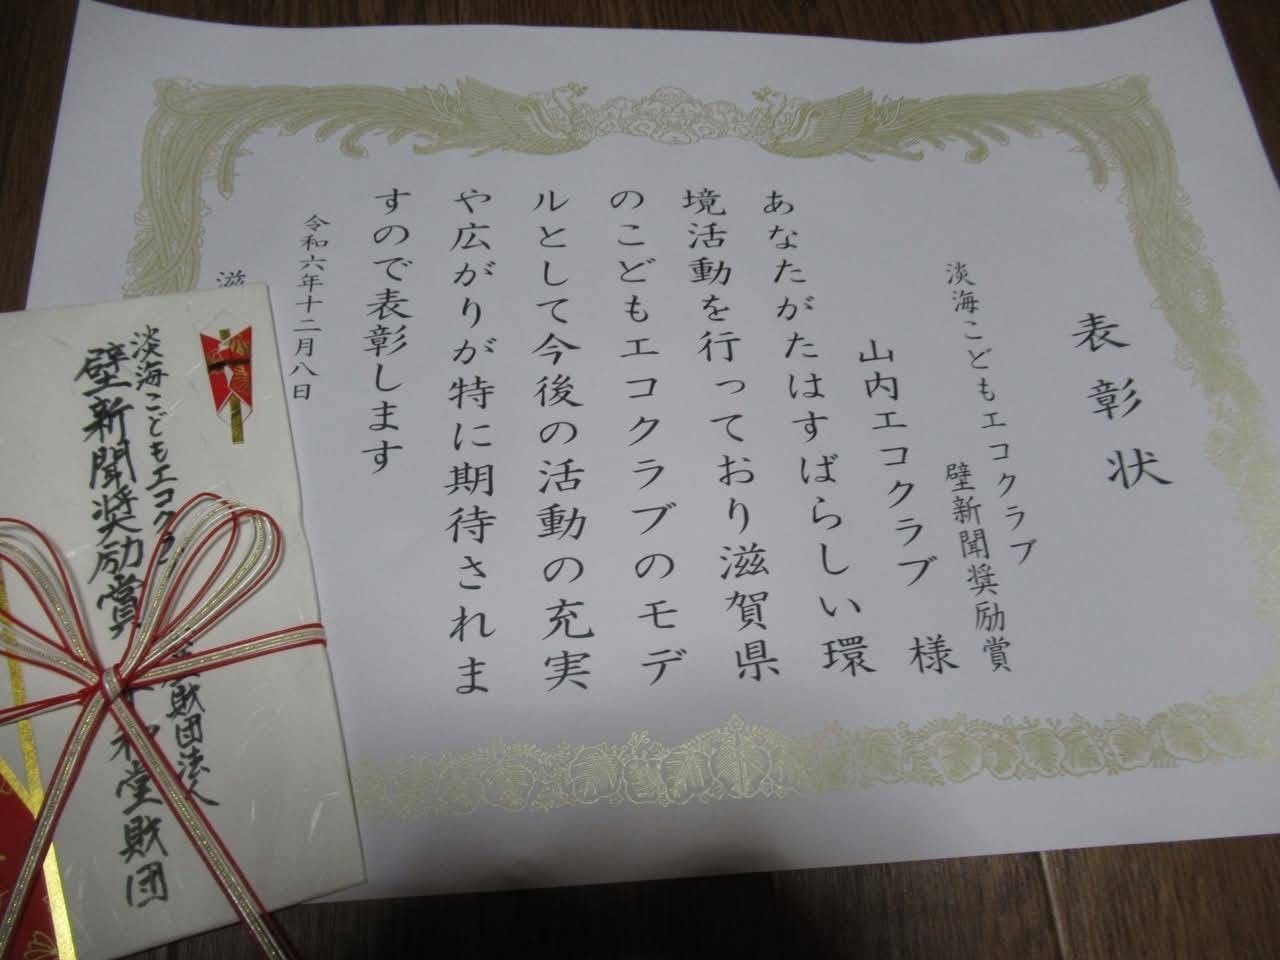 表彰状
淡海こどもエコクラブ
壁新聞奨励賞
山内エコクラブ 様
あなたがたはすばらしい環
境活動を行っており滋賀県
のこどもエコクラブのモデ
ルとして今後の活動の充実
や広がりが特に期待されま
すので表彰します
令和六年十二月八日
滋
淡海こどもエコクラ
壁新聞奨励賞
財団法人
和堂財団